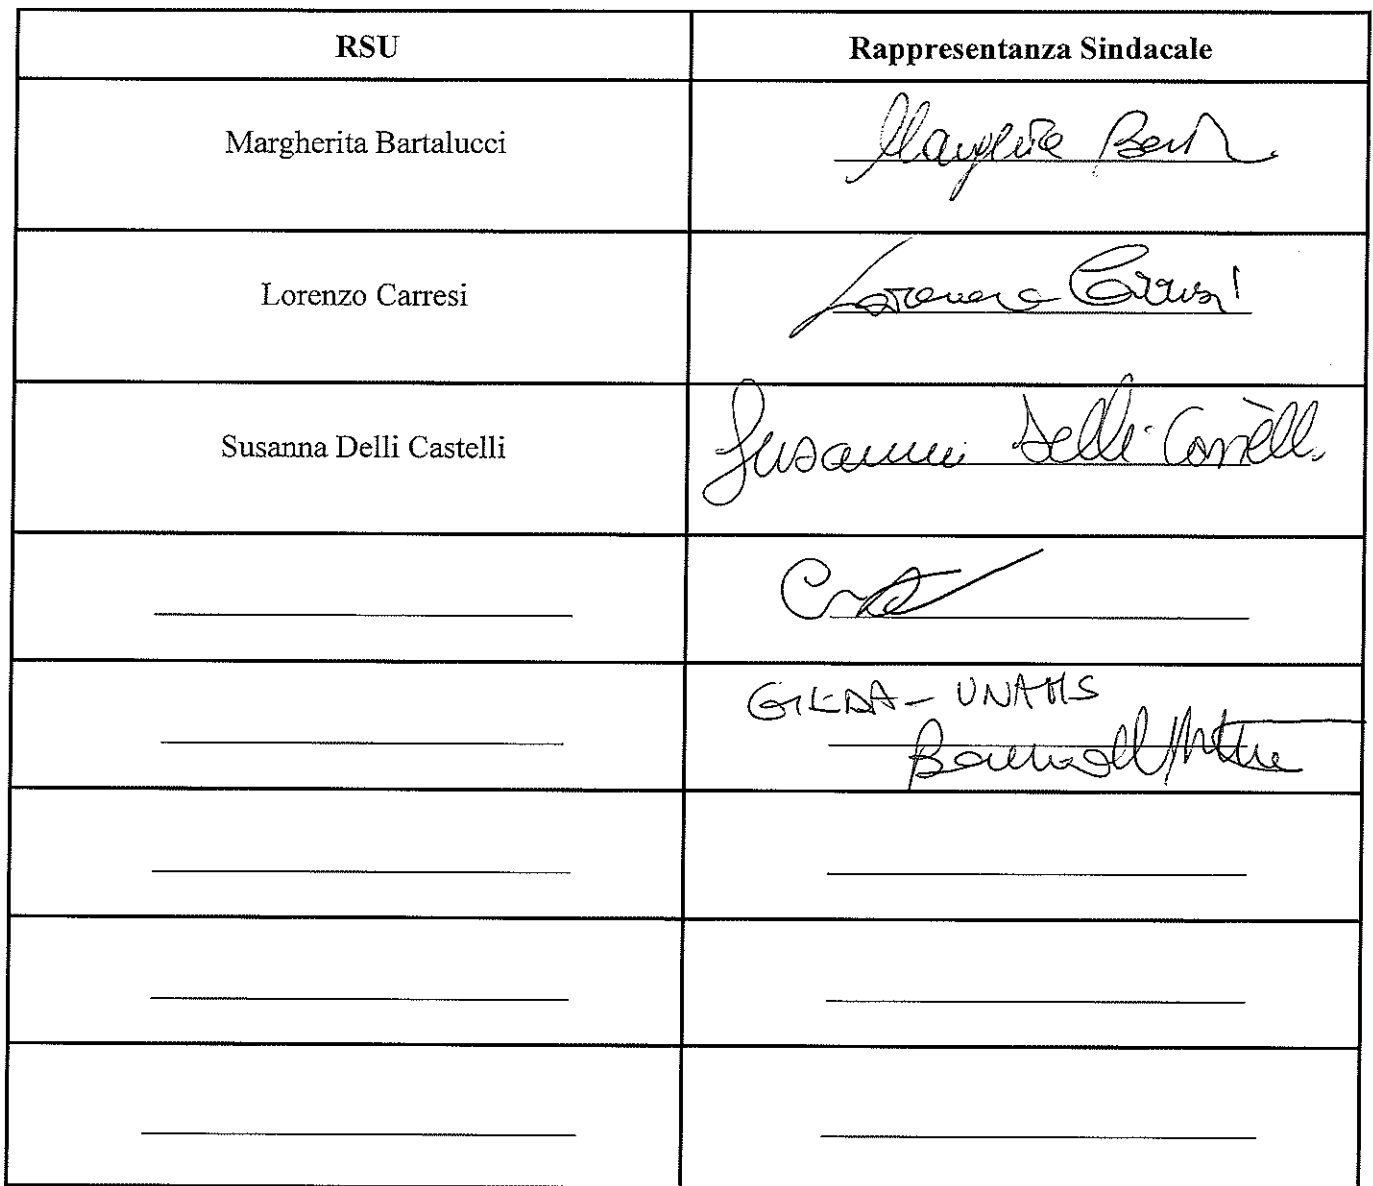 RSU Rappresentanza Sindacale
Margherita Bartalucci
Lorenzo Carresi Lorenzo Carresi
Susanna Delli Castelli Susanna Delli Castelli
GILDA - UNAMS